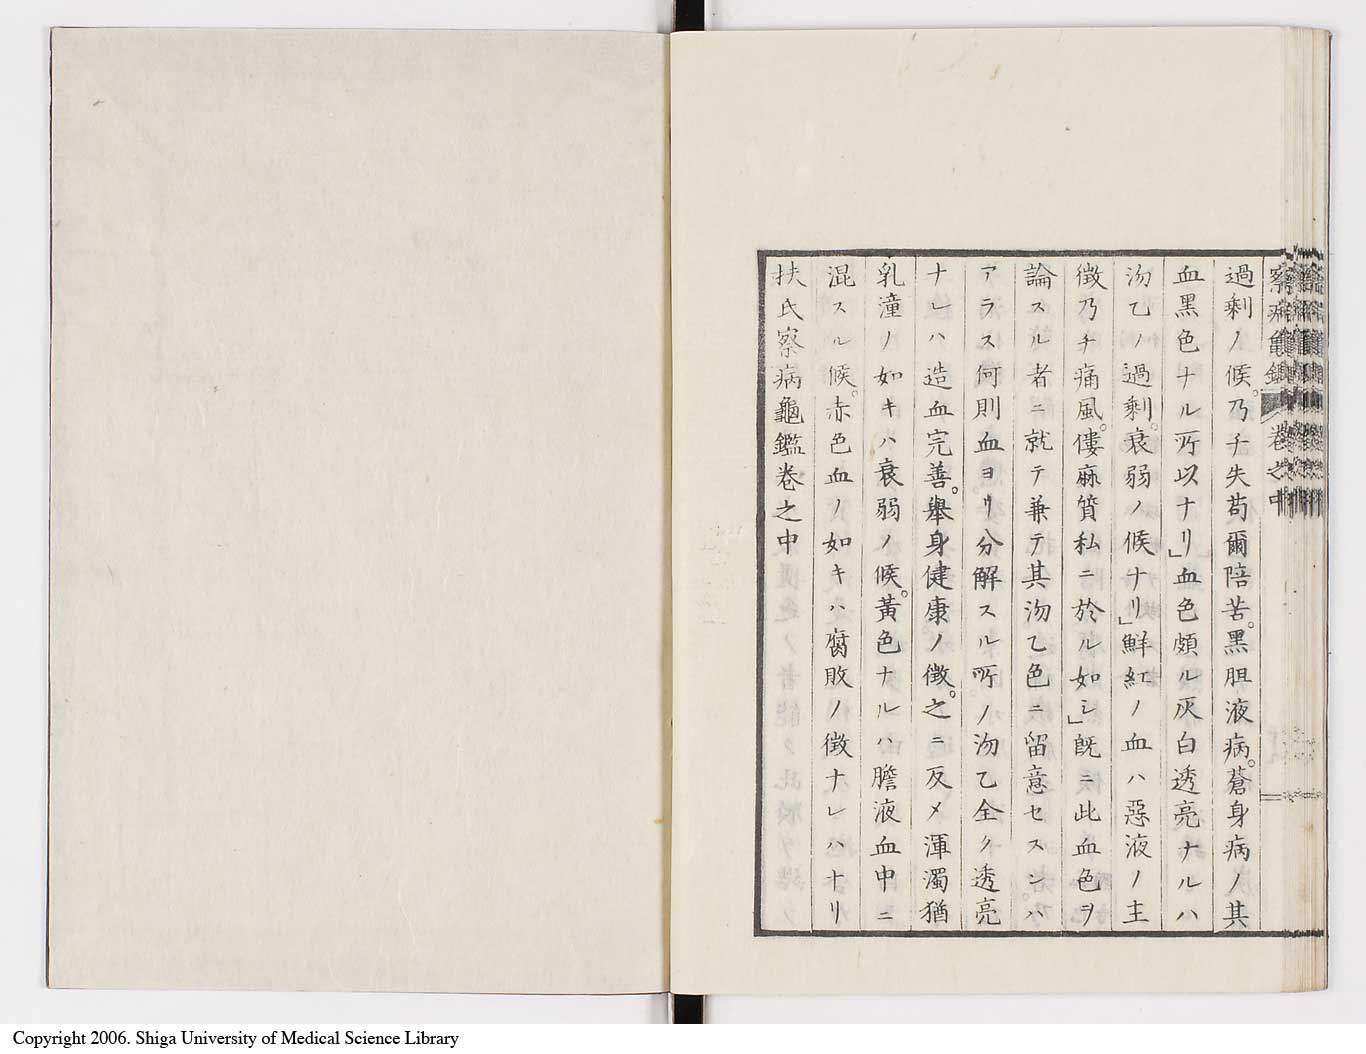 過剰ノ候。乃チ失苟爾陪苦。黑胆液病。蒼身病ノ其
血黑色ナル所以ナリ」血色頗ル灰白透亮ナルハ
沕乙ノ過剰。衰弱ノ候ナリ」鮮紅ノ血ハ惡液ノ主
徴乃チ痛風。僂麻質私ニ於ル如シ」既ニ此血色ヲ
論スル者ニ就テ兼テ其沕乙色ニ留意セスンハ
アラス何則血ヨリ分解スル所ノ沕乙全ク透亮
ナレハ造血完善。舉身健康ノ徴。之ニ反メ渾濁猶
乳潼ノ如キハ衰弱ノ候。黃色ナルハ膽液血中ニ
混スル候。赤色血ノ如キハ腐敗ノ徴ナレハナリ
扶氏察病龜鑑卷之中
察病龜鑑 卷之中
Copyright 2006. Shiga University of Medical Science Library